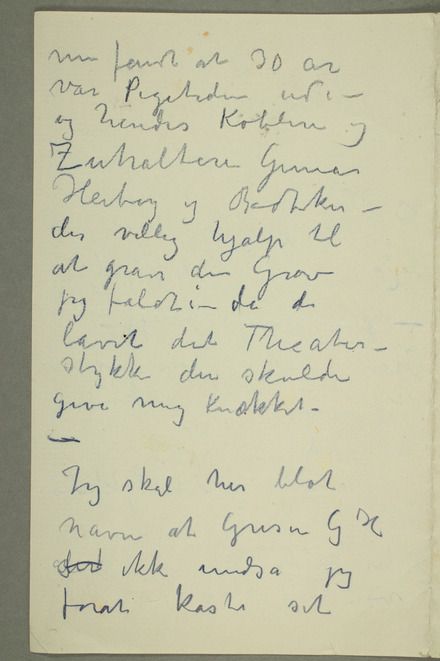 nu fandt at 30 ar
var Pigetiden ude –
og hendes Koblere og
Zuhaltere Gunnar
Heiberg og Bødtker –
der villig hjalp til
at grave den Grav
jeg faldt i – da de
lavet det Theater-
stykke der skulde
give mig Knækket –
—
Jeg skal her blot
navne at Grisen G H
ikke undsa jeg
forat kaste sit